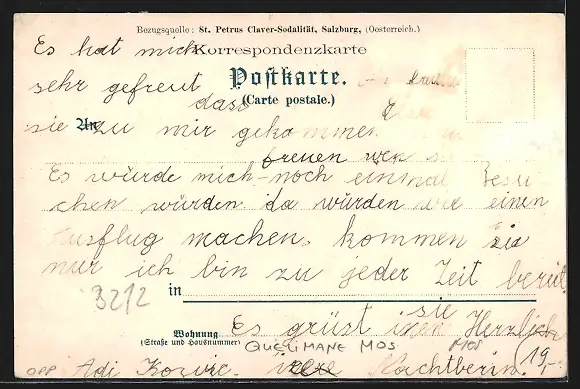 Bezugsquelle: St. Petrus Claver-Sodalität, Salzburg, (Oesterreich.)
Es hat mich
Korrespondenzkarte
sehr gefreut
Postkarte.
dass
(Carte postale.)
sie zu mir gekommen
An
freuen wen
Es würde mich noch einmal Besu
chen würden. da würden wir einen
Ausflug machen. kommen sie
nur ich bin zu jeder Zeit bereit.
3212
in
sie
Wohnung
(Straße und Hausnummer)
Es grüst inen Herzlich
QUELIMANE MOS
MOS
19,-
OPP Adi